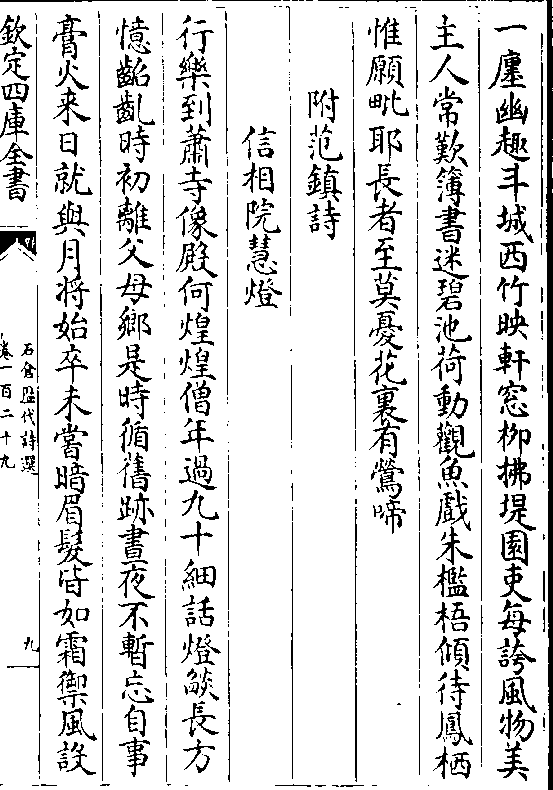 一廛幽趣斗城西竹映軒窓栁拂堤園吏每誇風物美
主人常歎簿書迷碧池荷動觀魚戲朱檻梧傾待鳳栖
惟願毗耶長者至莫憂花裏有鶯啼
附范鎮詩
信相院慧燈
行樂到蕭寺像殿何煌煌僧年過九十細話燈燄長方
憶齠齓時初離父母鄉是時循舊跡晝夜不暫忘自事
膏火来日就與月将始卒未嘗暗眉髮皆如霜禦風設
欽定四庫全書
石倉歷代詩選
卷一百二十九
九